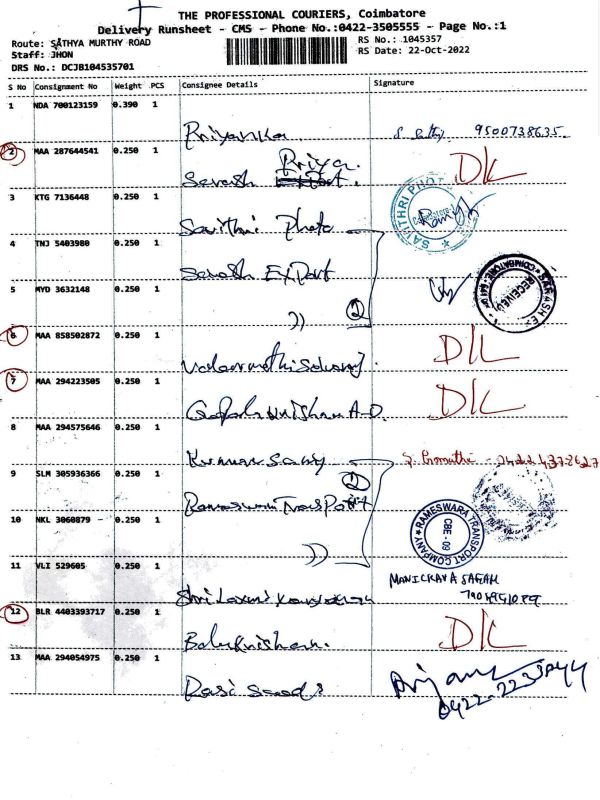 THE PROFESSIONAL COURIERS, Coimbatore
Delivery Runsheet - CMS - Phone No.:0422-3505555 - Page No.:1
Route: SATHYA MURTHY ROAD
RS No.: 1045357
Staff: JHON
RS Date: 22-Oct-2022
DRS No.: DCJB104535701
S No Consignment No Weight PCS Consignee Details Signature
1 NDA 700123159 0.390 1
Priyanka 9500738635.
2 MAA 287644541 0.250 1
Priya.
DL
3 KTG 7136448 0.250 1
Savithri Photo
SAVITHRI PHOTO
4 TNJ 5403980 0.250 1
Sarash Export
5 MYD 3632148 0.250 1
〃 2
SARASH EX
COIMBATORE
RECEIVED
6 MAA 858502872 0.250 1
DL
7 MAA 294223505 0.250 1
Gopalakrishnan A.D. DL
8 MAA 294575646 0.250 1
Kumarsamy
9 SLM 305936366 0.250 1
Rameswara Transport 2
10 NKL 3060879 0.250 1
〃
RAMESWARA TRANSPORT COMPANY
CBE - 09
11 VLI 529605 0.250 1
Shri Laxmi
MANICKAVASAGAM
12 BLR 4403393717 0.250 1
Balakrishnan. DL
13 MAA 294054975 0.250 1
Rasi Seeds